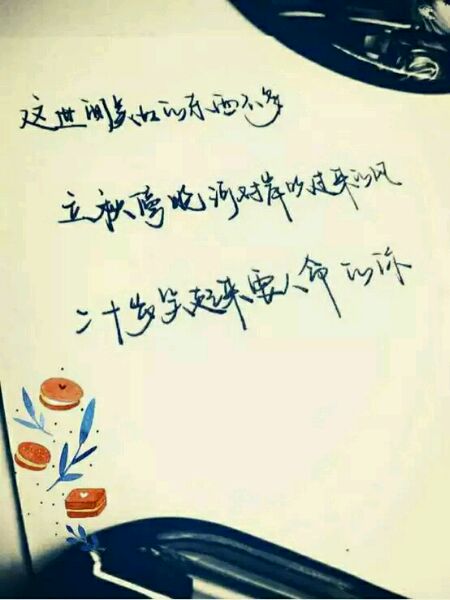 这世间美好的东西不多
立秋傍晚河对岸吹过来的风
二十岁笑起来要人命的你